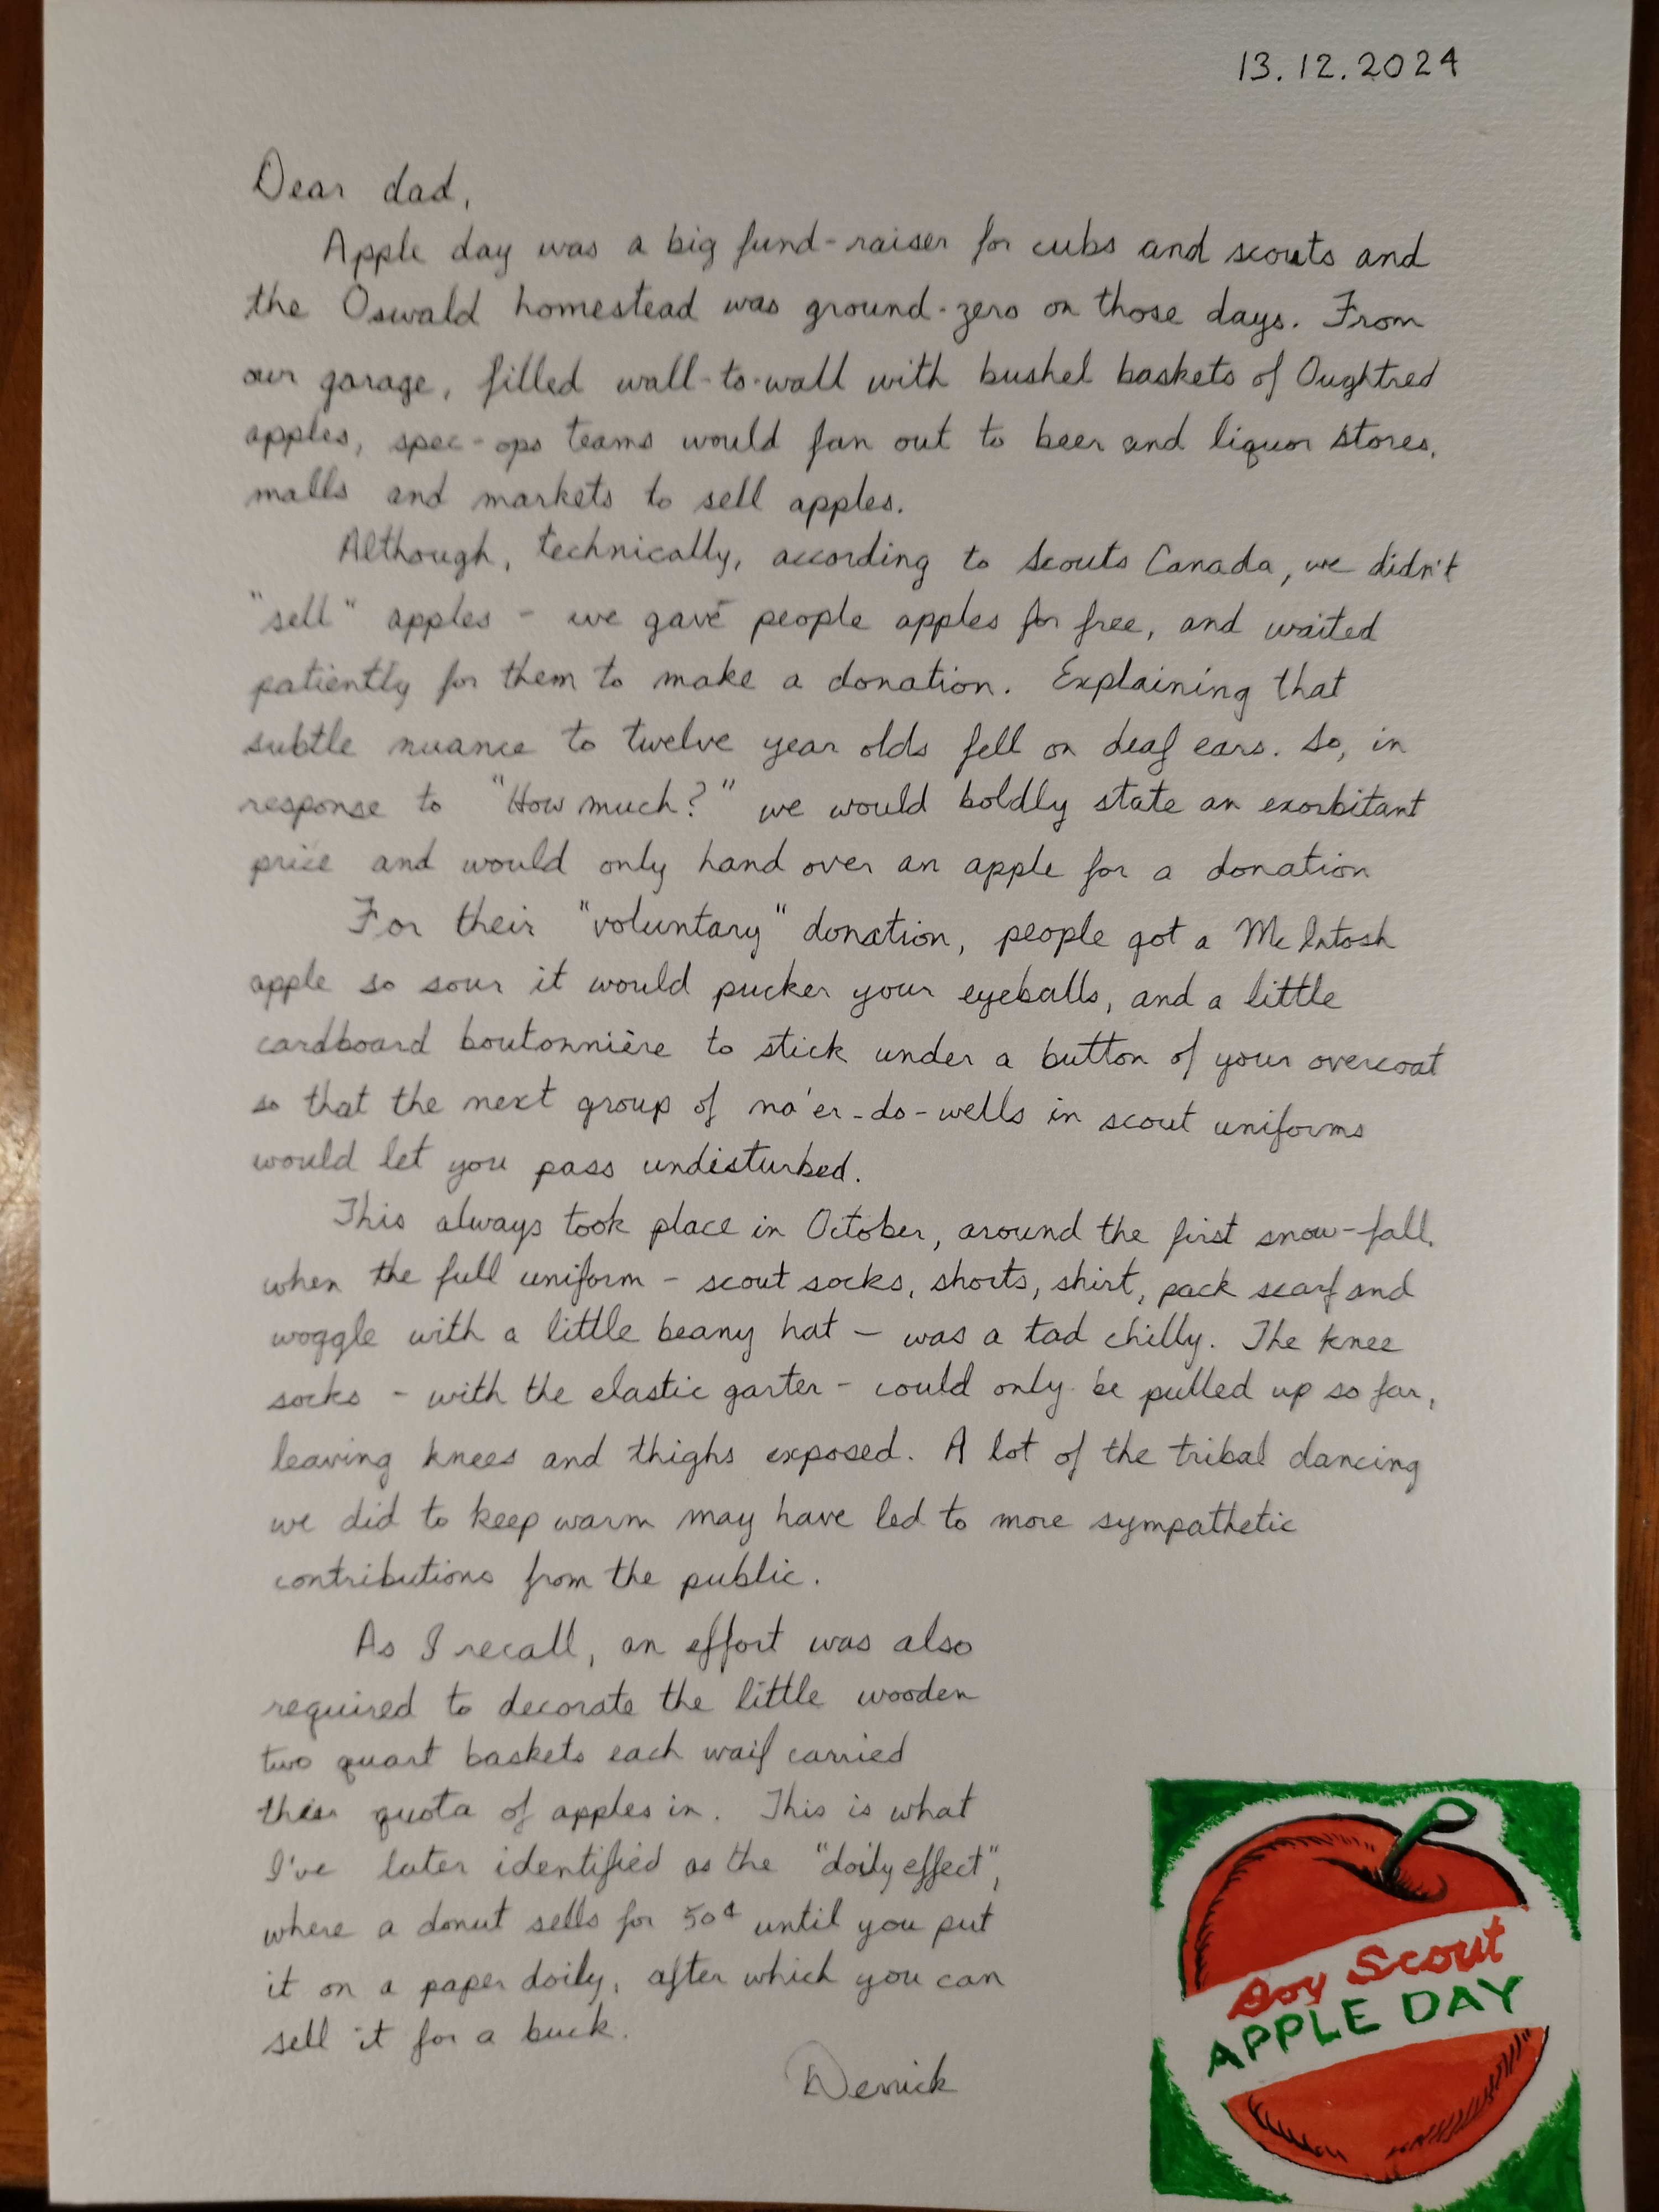 13.12.2024
Dear dad,
Apple day was a big fund-raiser for cubs and scouts and
the Oswald homestead was ground-zero on those days. From
our garage, filled wall-to-wall with bushel baskets of Oughtred
apples, spec-ops teams would fan out to beer and liquor stores,
malls and markets to sell apples.
Although, technically, according to Scouts Canada, we didn't
"sell" apples - we gave people apples for free, and waited
patiently for them to make a donation. Explaining that
subtle nuance to twelve year olds fell on deaf ears. So, in
response to "How much?" we would boldly state an exorbitant
price and would only hand over an apple for a donation
For their "voluntary" donation, people got a McIntosh
apple so sour it would pucker your eyeballs, and a little
cardboard boutonnière to stick under a button of your overcoat
so that the next group of no'er-do-wells in scout uniforms
would let you pass undisturbed.
This always took place in October, around the first snow-fall,
when the full uniform - scout socks, shorts, shirt, pack scarf and
woggle with a little beany hat - was a tad chilly. The knee
socks - with the elastic garter - could only be pulled up so far,
leaving knees and thighs exposed. A lot of the tribal dancing
we did to keep warm may have led to more sympathetic
contributions from the public.
As I recall, an effort was also
required to decorate the little wooden
two quart baskets each waif carried
their quota of apples in. This is what
I've later identified as the "doily effect",
where a donut sells for 50¢ until you put
it on a paper doily, after which you can
sell it for a buck.
Derrick
Boy Scout
APPLE DAY